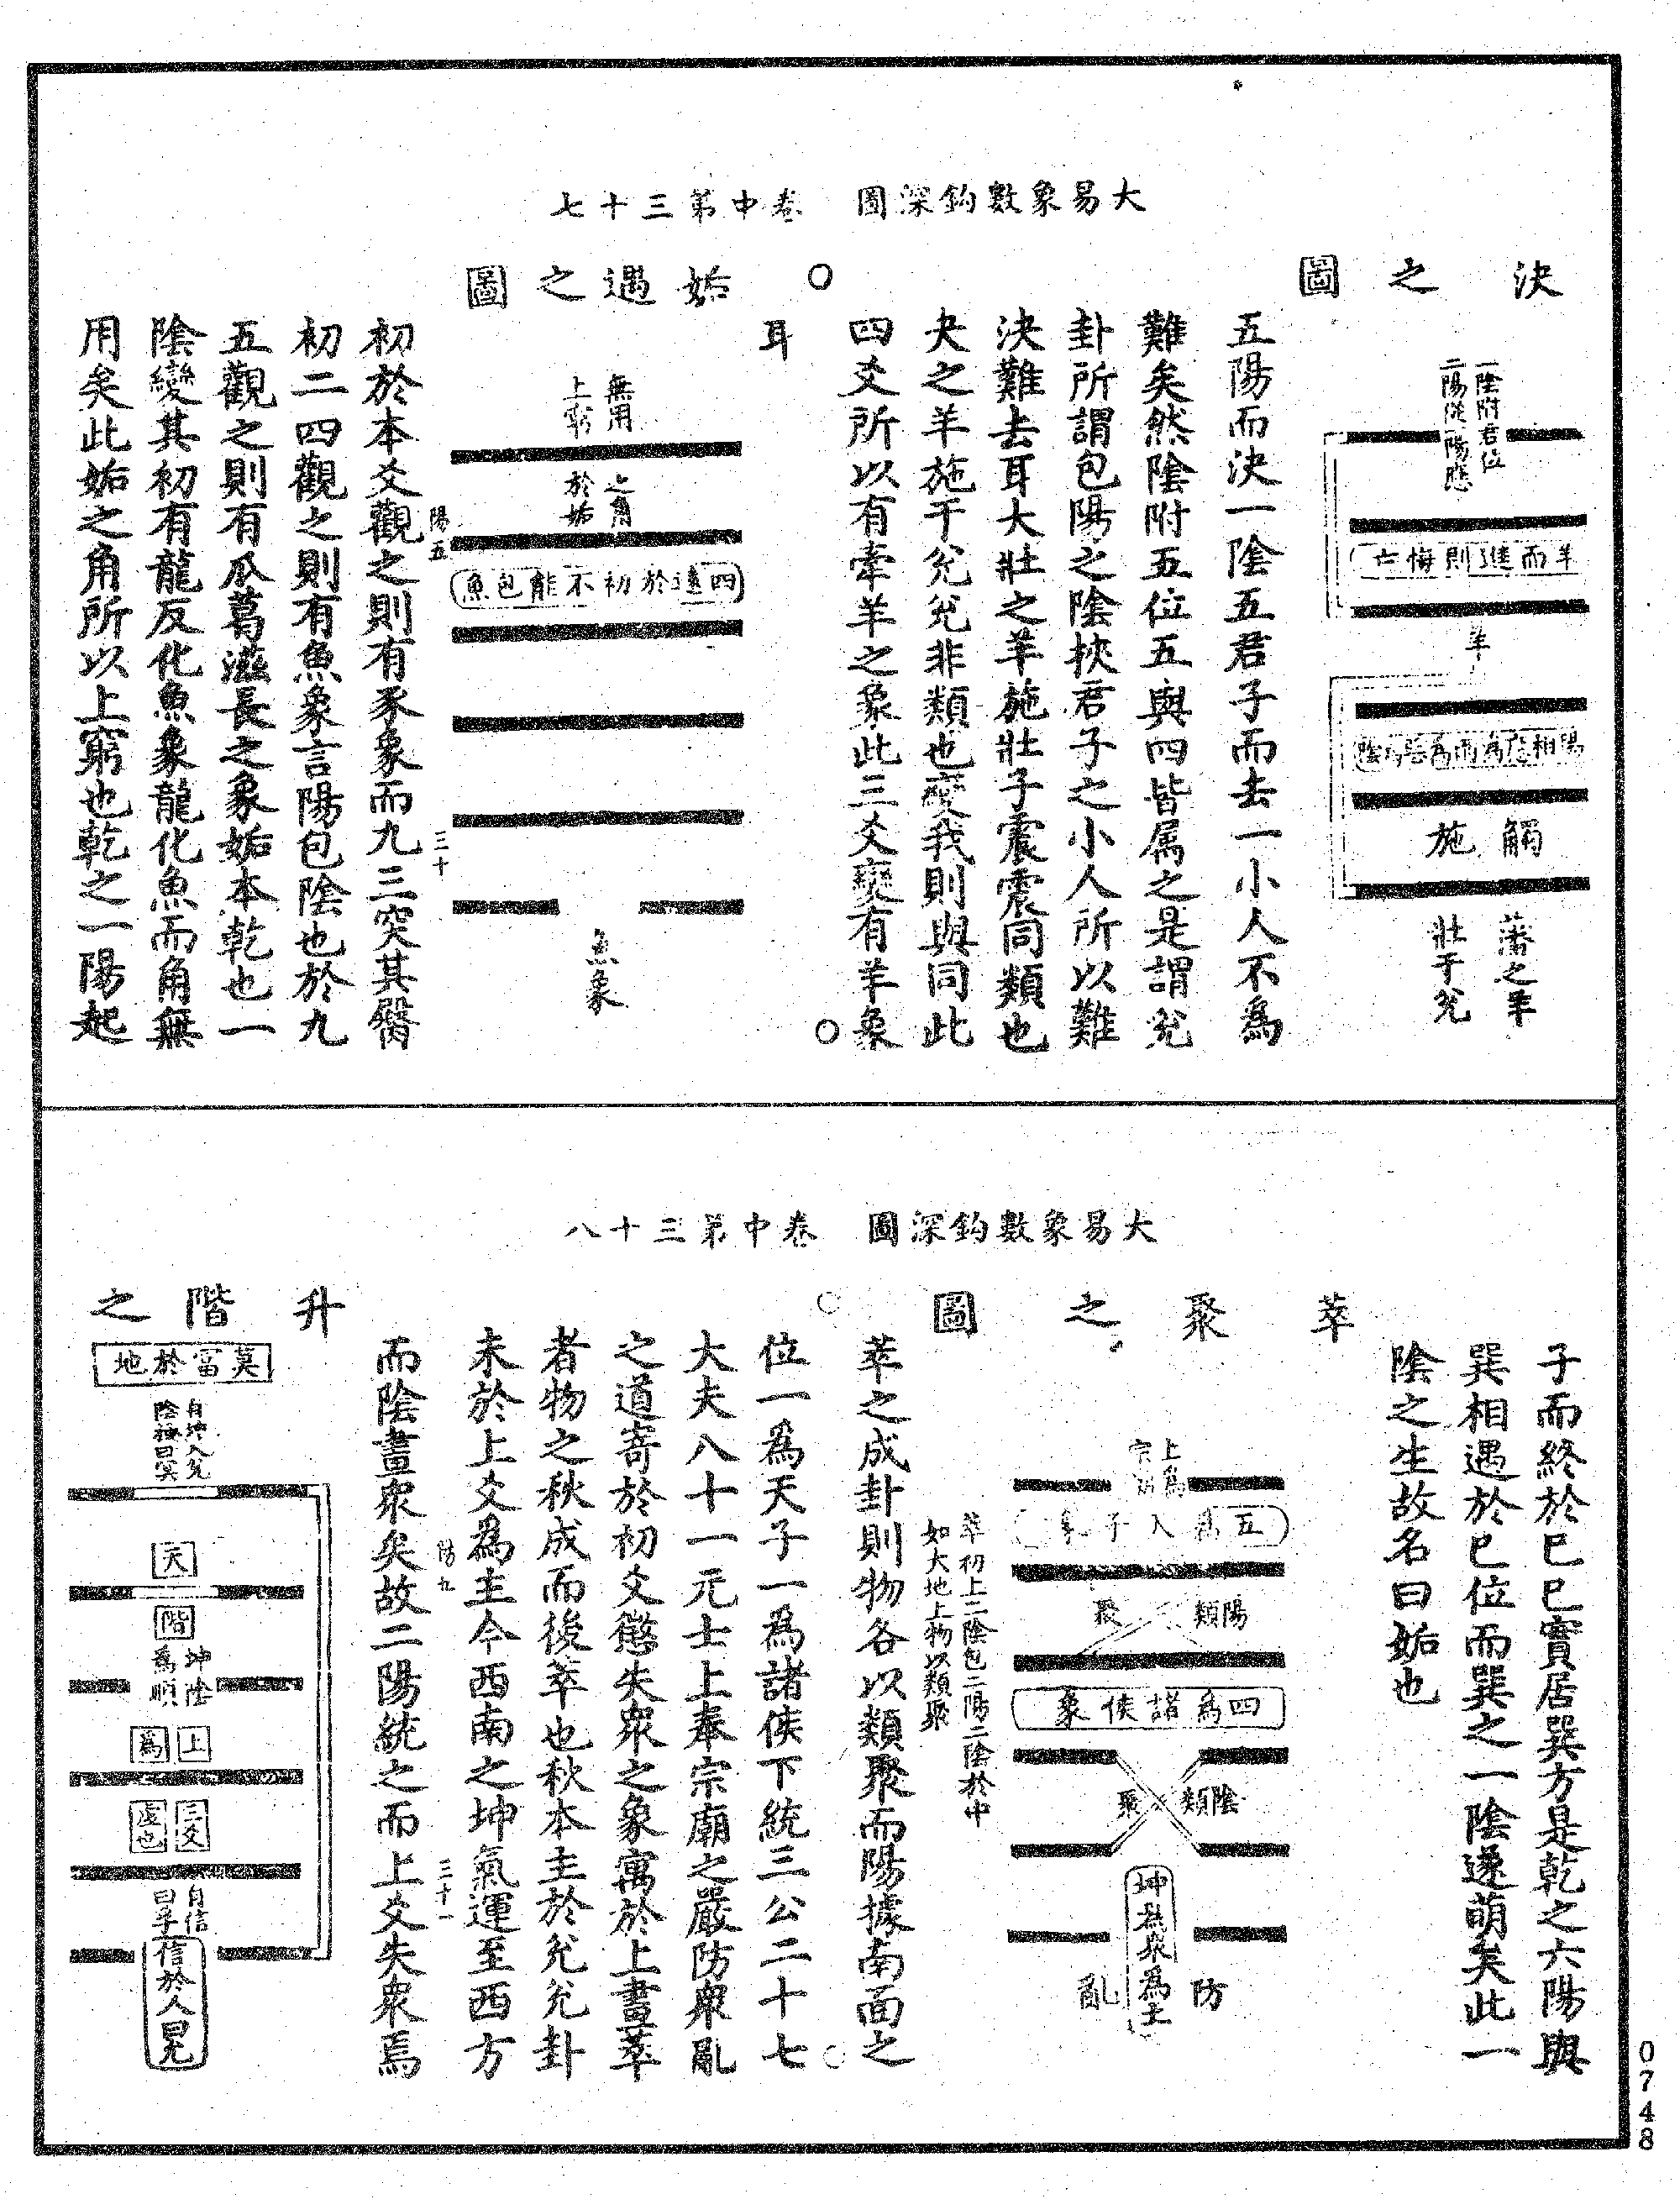 大易象數鈎深圖 卷中第三十七
決之圖
一陰附君位
二陽從一陽應
羊而進則悔亡
羊
觸
施
藩之羊
壯于兌
五陽而決一陰五君子而去一小人不為
難矣然陰附五位五與四皆属之是謂兌
卦所謂包陽之陰挾君子之小人所以難
決難去耳大壯之羊施壯于震震同類也
夬之羊施于兌兌非類也變我則與同此
四爻所以有牽羊之象此三爻變有羊象
耳
姤遇之圖
無用
上窮
之角
於姤
四遠於初不能包魚
魚象
陽五
三十
初於本爻觀之則有豕象而九三突其臀
初二四觀之則有魚象言陽包陰也於九
五觀之則有瓜葛滋長之象姤本乾也一
陰變其初有龍反化魚象龍化魚而角無
用矣此姤之角所以上窮也乾之一陽起
大易象數鈎深圖 卷中第三十八
子而終於巳巳實居巽方是乾之六陽與
巽相遇於巳位而巽之一陰遂萌矣此一
陰之生故名曰姤也
萃聚之圖
上為
宗廟
五為天子象
陽類
聚
四為諸侯象
陰類
聚
坤為衆為土
防
亂
萃初上二陰包二陽二陰於中
如大地上物以類聚
萃之成卦則物各以類聚而陽據南面之
位一為天子一為諸侯下統三公二十七
大夫八十一元士上奉宗廟之嚴防衆亂
之道寄於初爻懲失衆之象寓於上畫萃
者物之秋成而後萃也秋本主於兌兌卦
未於上爻為主今西南之坤氣運至西方
而陰畫衆矣故二陽統之而上爻失衆焉
陽九
三十一
升階之
莫富於地
自坤入兌
陰極曰冥
天
階
坤陰
為順
上
為
三爻
虛也
自信
曰孚
信於人曰允
0748